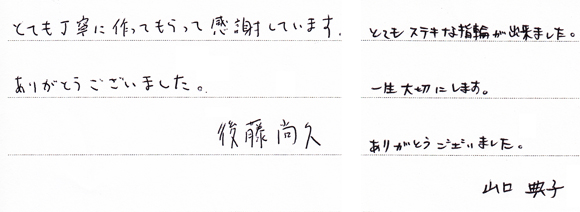 とても丁寧に作ってもらって感謝しています.
ありがとうございました。
後藤尚久
とてもステキな指輪が出来ました。
一生大切にします。
ありがとうございました。
山口典子